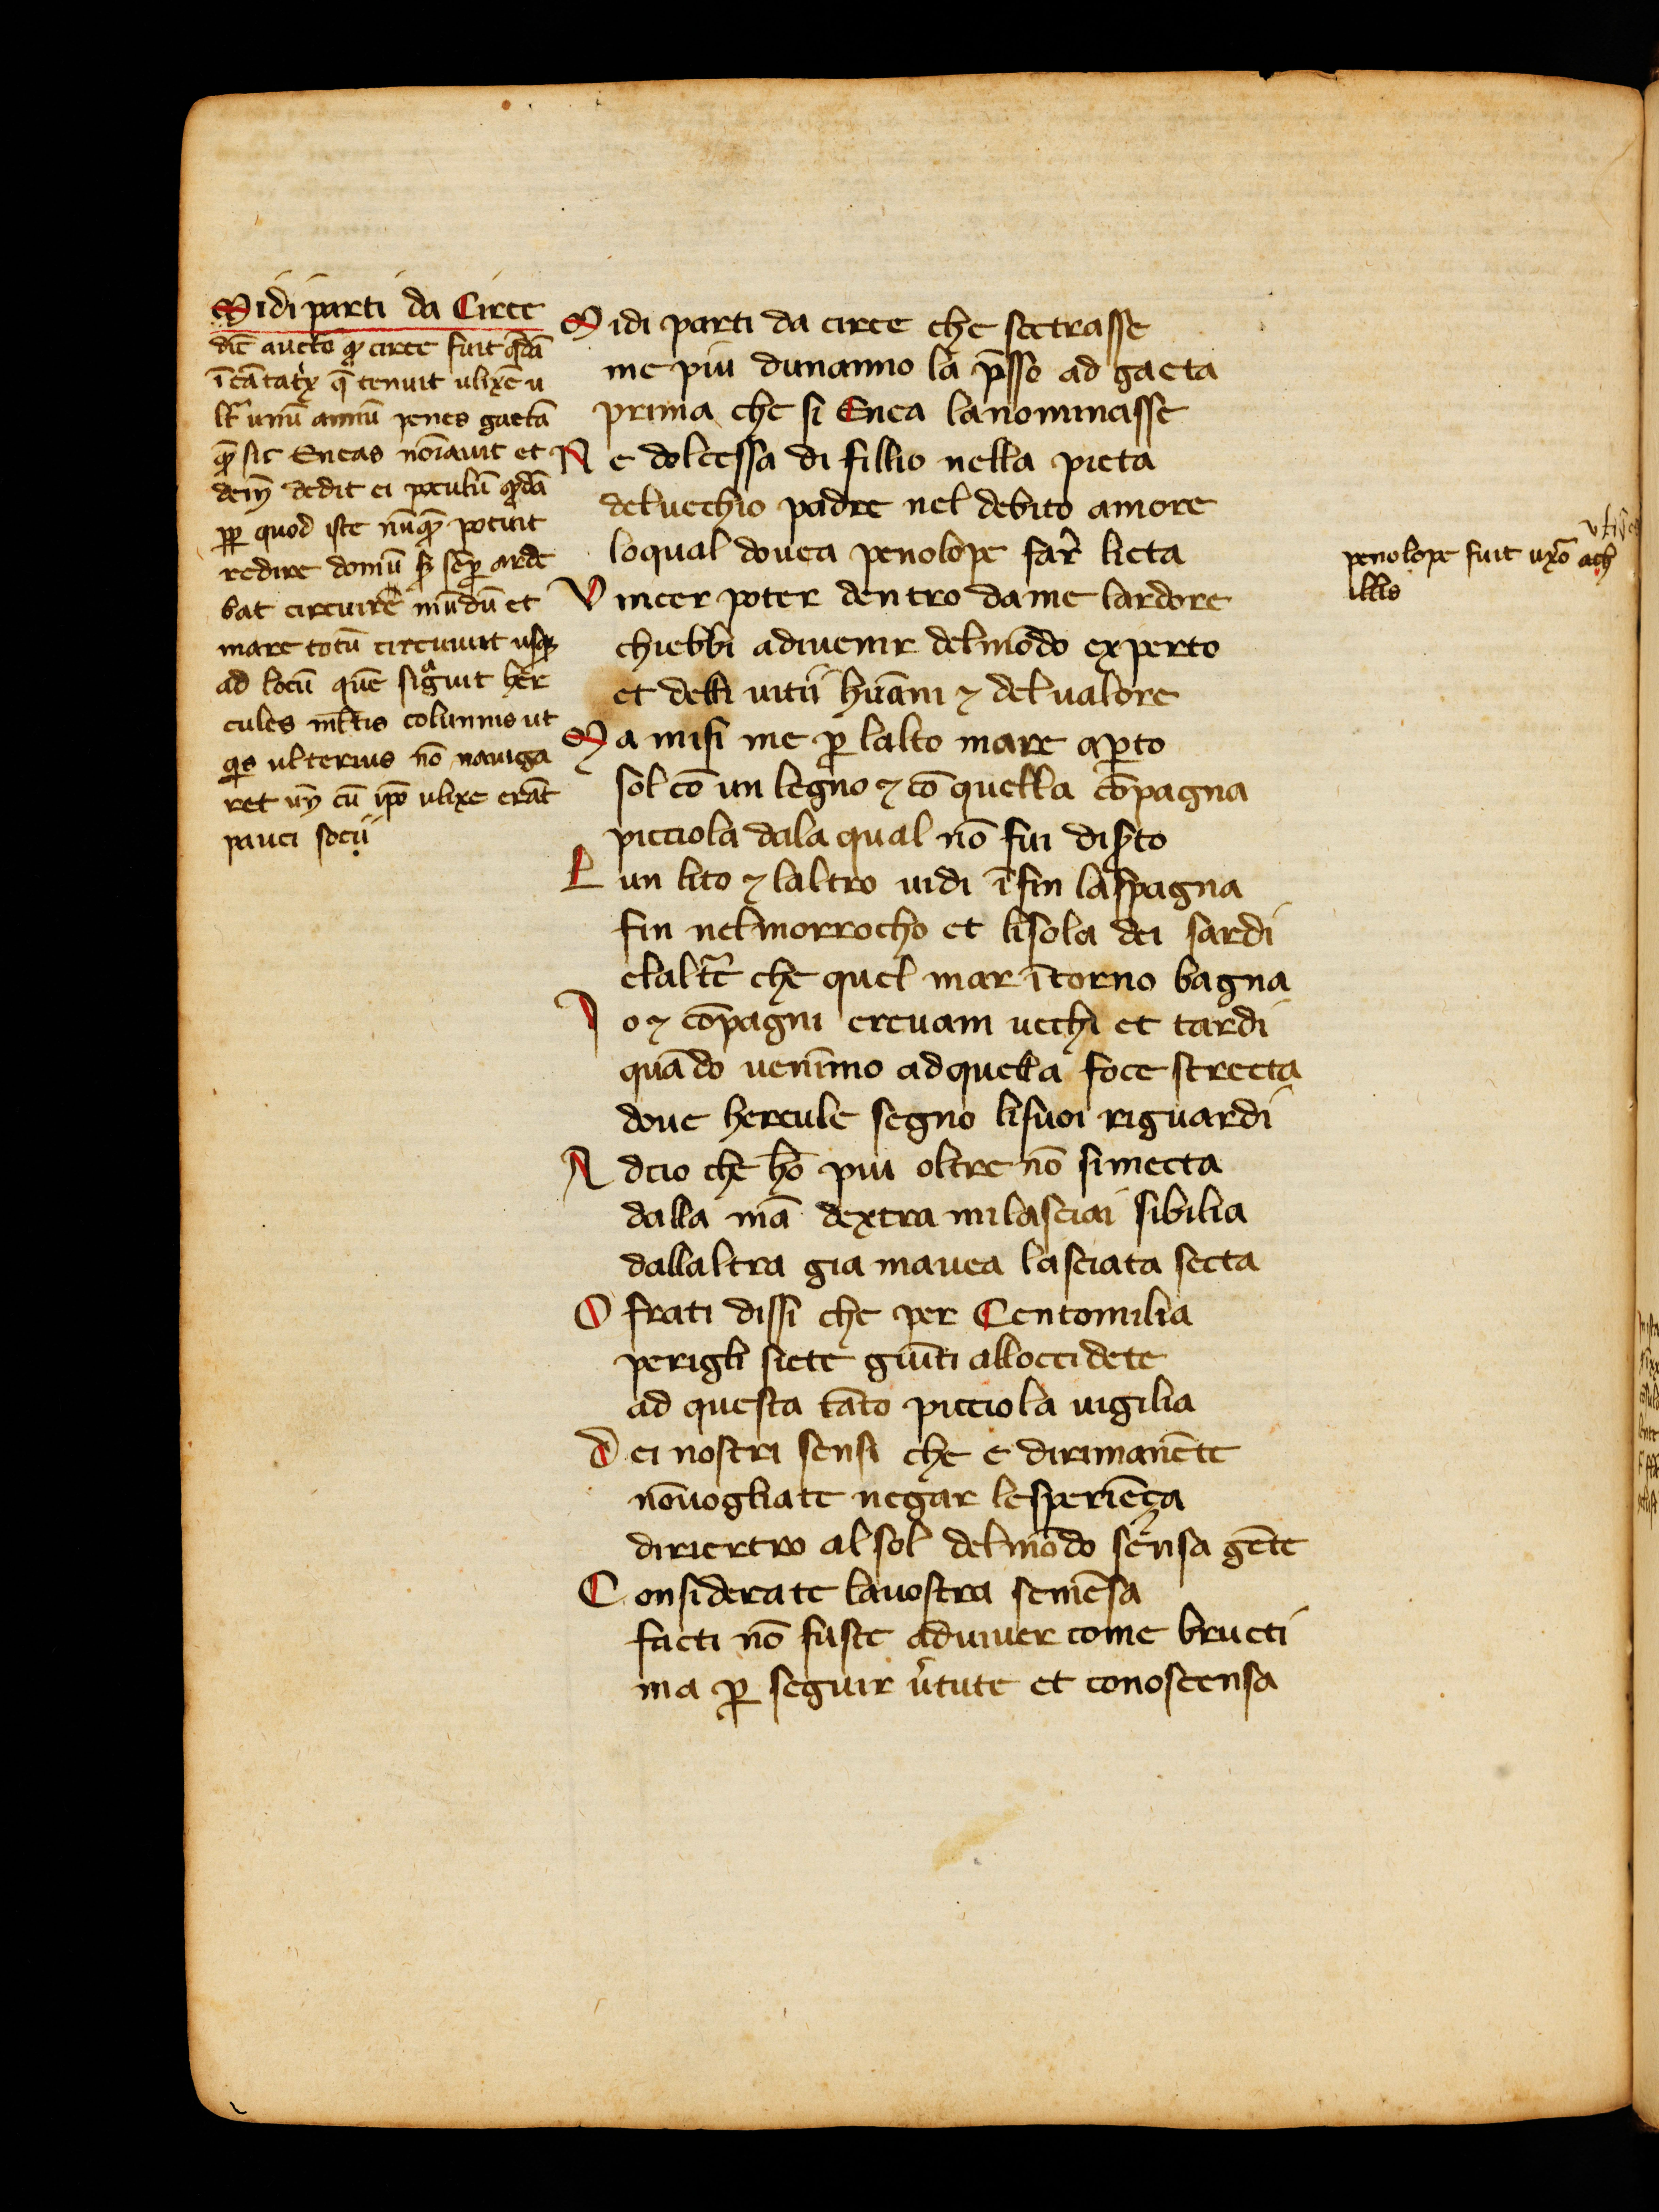 Midi parti da Circe
dic̄ auctō qͥ circe fuit qdā
īcātatͥx q̄ tenuit ulixē u
ltͣ unū annū penes gaetā
sic Eneas noīauit et
dedit ei poculū
quod iste nūqͣ potuit
redire domū sꝫ sēꝑ arde
bat circuire mūdū et
mare totū circuiuit usqꝫ
ad locū quē sigͣuit her
cules columnis ut
qͥs ulterius nō nauiga
ret cū ip̄o ulixe erāt
pauci socii
Midi parti da circe che sectrasse
me piu dunanno la p̄sso ad gaeta
prima che si Enea lanominasse
Ne dolcessa di fillio nella pieta
deluechio padre nel debito amore
loqual douea penolope far̄ lieta
Vincer poter dentro da me lardore
chiebbi adiuenir delmōdo experto
et delli uitii hūani ⁊ delualore
Ma misi me ꝑ lalto mare aꝑto
sol cō un legno ⁊ cō quella cōpagna
picciola dala qual nō fui disͤto
Lun lito ⁊ laltro uidi īfin laspagna
fin nelmorrocho et lisola dei sardi
elaltrē che quel mar ītorno bagna
Io ⁊ cōpagni erauam uechi et tardi
quādo uenīmo adquella foce strecta
doue hercule segno lisuoi riguardi
Adcio che hō piu oltre nō simecta
dalla mā dextra milasciai sibilia
dallaltra gia mauea lasciata secta
O frati dissi che per Centomilia
perigli siete giūti alloccidete
ad questa tāto picciola uigilia
Dei nostri sensi che e dirimanēte
nōuogliate negar lesperiēça
dirietro al sol delmōdo sēnsa gēte
Considerate lauostra semēsa
facti nō fuste aduiuer come bructi
ma ꝑ seguir ūtute et conoscensa
ulixes
penolope fuit uxō ach
illis